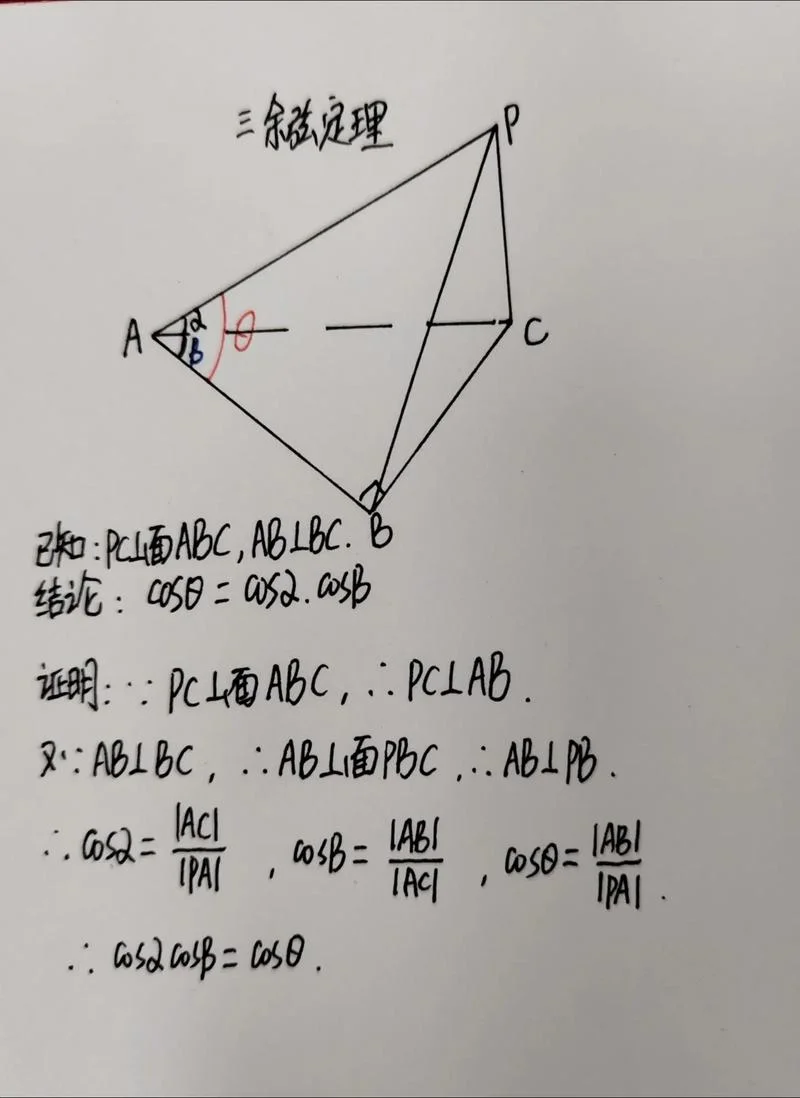 三余弦定理
P
A
α
β
θ
C
B
已知:PC⊥面ABC,AB⊥BC.
结论:cosθ=cosα.cosβ
证明:∵PC⊥面ABC,∴PC⊥AB.
又∵AB⊥BC,∴AB⊥面PBC,∴AB⊥PB.
∴cosα=|AC|/|PA|,cosβ=|AB|/|AC|,cosθ=|AB|/|PA|.
∴cosαcosβ=cosθ.